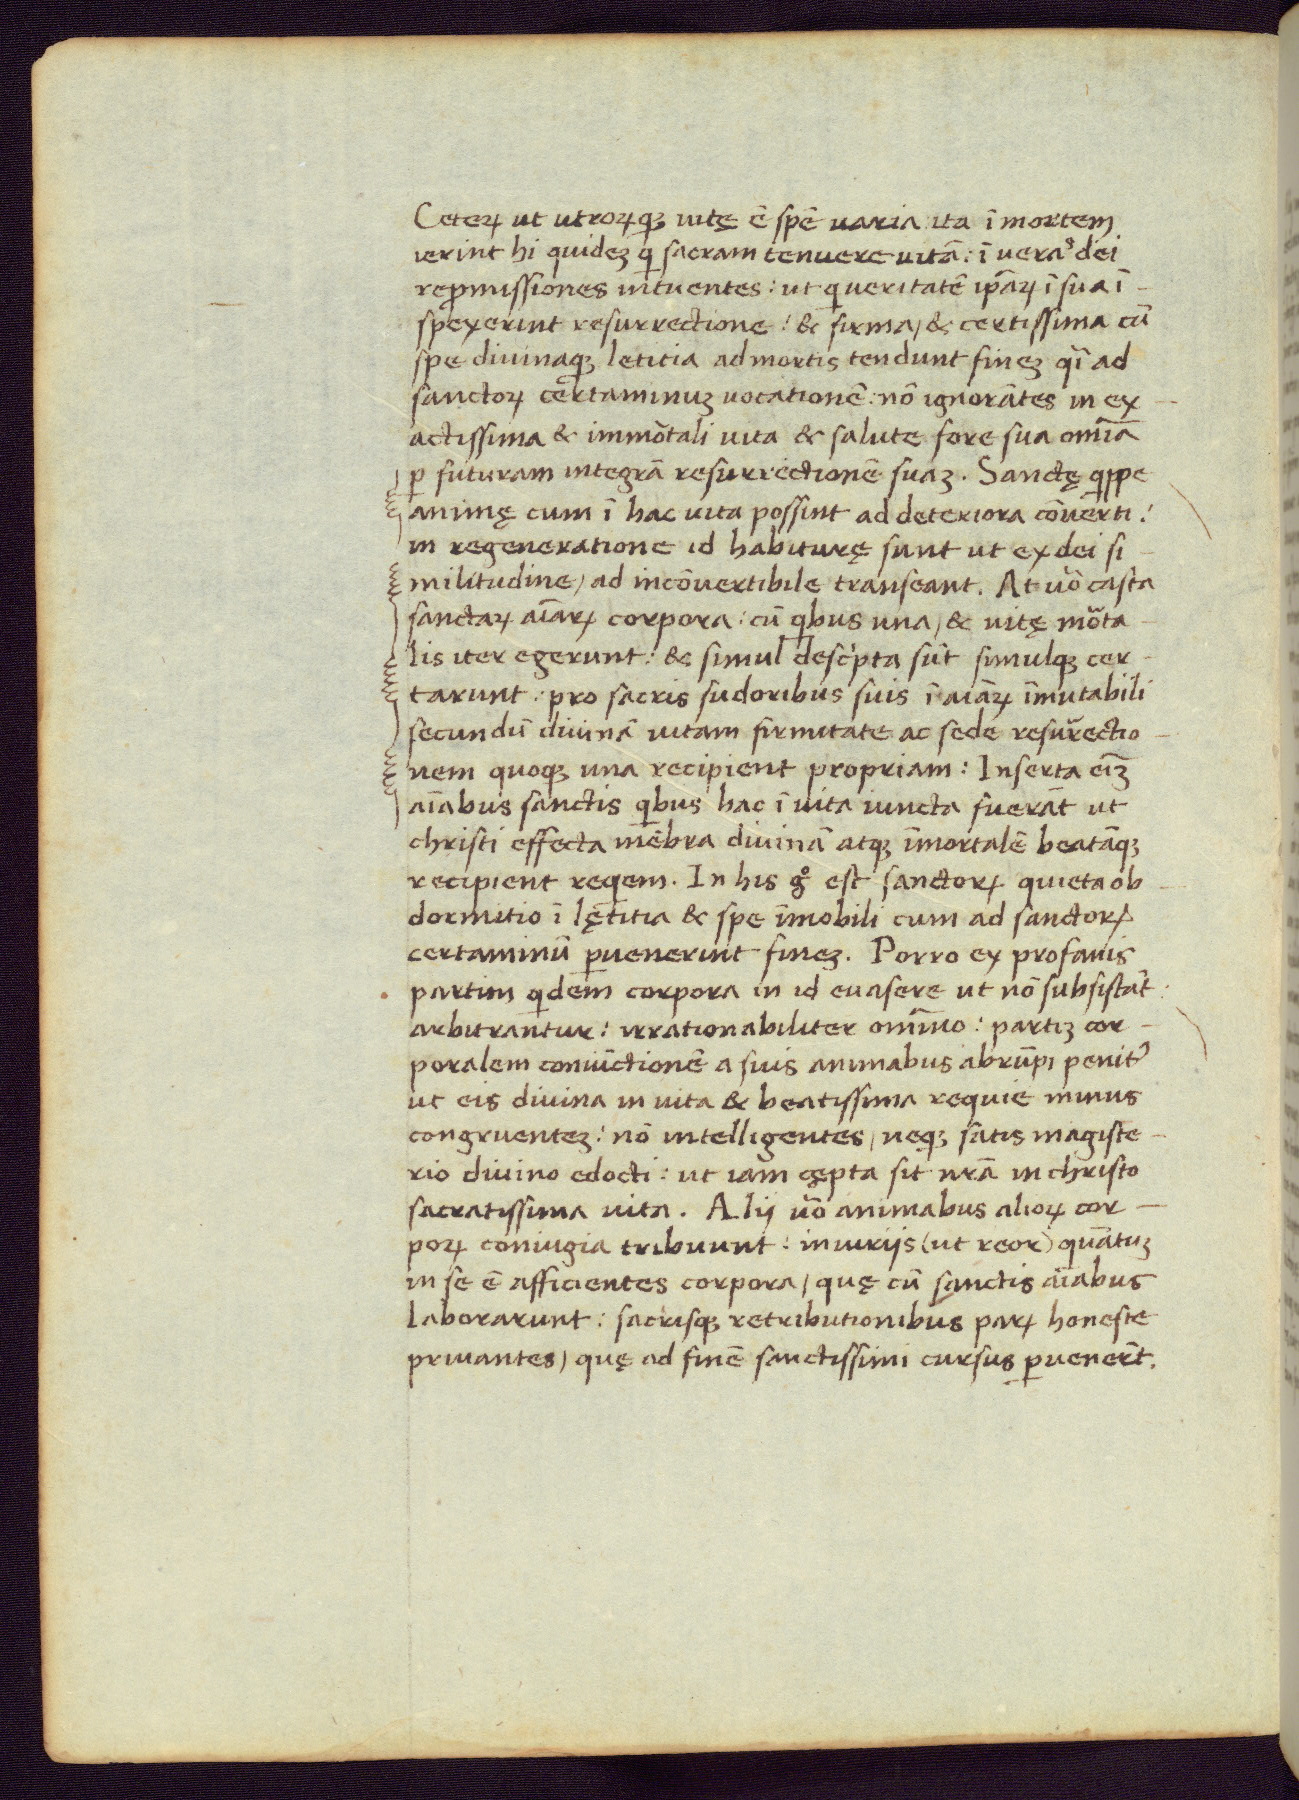 Ceteꝝ ut utroꝝqꝫ uitę ē spē uaria ita ī mortem
ierint hi quideꝫ q̇ sacram tenuere uitā: ī ueraˢ dei
reꝓmissiones intuentes: ut q̇ ueritatē ip̄aꝝ ī sua ī-
spexerint resurrectione: & firma, & certissima cū
spe diuinaqꝫ letitia ad mortis tendunt fineꝫ q̄i ad
sanctoꝝ certaminuꝫ uocationē: nō ignorātes in ex-
actissima & immõtali uita & salute fore sua om̄ia
ꝑ futuram integrā resurrectionē suaꝫ. Sanctę q̇ppe
animę cum ī hac uita possint ad deteriora cōuerti:
in regeneratione id habiturę sunt ut ex dei si-
militudine, ad incōuertibile transeant. At uõ casta
sanctaꝝ aīaꝝ corpora: cū q̇bus una, & uitę mõta-
lis iter egerunt: & simul descͥpta sūt simulqꝫ cer-
tarunt: pro sacris sudoribus suis ī aīaꝝ īmutabili
secundū diuinā uitam firmitate ac sede resur̃ectio-
nem quoqꝫ una recipient propriam: Inserta eīꝫ
aīabus sanctis q̇bus hac ī uita iuncta fuerāt ut
christi effecta mēbra diuinā atqꝫ īmortalē beatāqꝫ
recipient requem. In his gͦ est sanctoꝝ quieta ob-
dormitio ī lętitia & spe īmobili cum ad sanctoꝝ
certaminū ꝑuenerint fineꝫ. Porro ex profanis
partim q̇dem corpora in id euasere ut nō subsistāt:
arbitrantur: irrationabiliter om̄ino: partiꝫ cor-
poralem coniūctionē a suis animabus abrūpi penit᷒
ut eis diuina in uita & beatissima requie minus
congruenteꝫ: nō intelligentes, neqꝫ satis magiste-
rio diuino edocti: ut iam cępta sit nr̄a in christo
sacratissima uita. Alij uõ animabus alioꝝ cor-
poꝝ coniugia tribuunt: iniurijs (ut reor) quātuꝫ
in se ē afficientes corpora, quę cū sanctis aīabus
laborarunt: sacrisqꝫ retributionibus paꝝ honeste
priuantes, quę ad finē sanctissimi cursus ꝑuenerīt.